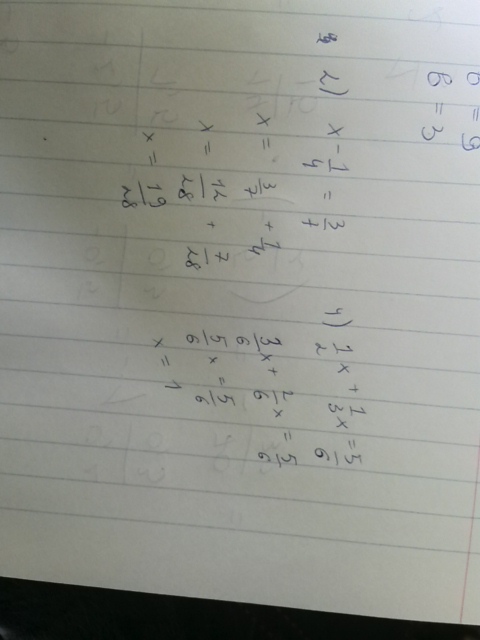 6 = 9
6 = 3
2) x - 1/4 = 3/7
x = 3/7 + 1/4
x = 12/28 + 7/28
x = 19/28
4) 1/2 x + 1/3 x = 5/6
3/6 x + 2/6 x = 5/6
5/6 x = 5/6
x = 1